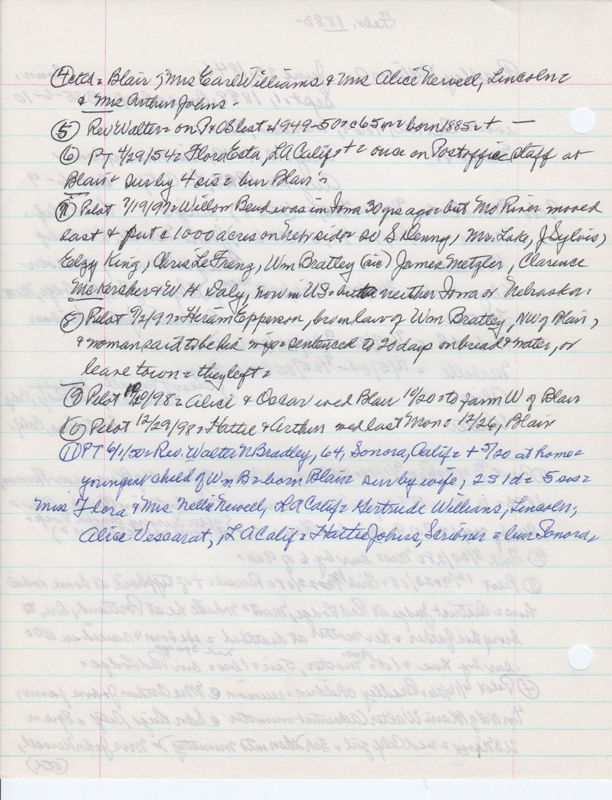 ④ ctd = Blair; Mrs Earl Williams & Mrs Alice Newell, Lincoln =
& Mrs Arthur Johns =
⑤ Rev Walter = on 1949-50 = c 65 yr = born 1885 +
⑥ PT 4/29/54 = Flora Esta, LA Calif + = once on Postoffice staff at
Blair = surv by 4 sis = bur Blair =
⑦ Pilot 7/19/97 = Willow Bend was in Iowa 30 yrs ago = but Mo River moved
east & put c 1000 acres on Neb side = S Denny, Mr. Lake, J Sylvis,
Elzy King, Chris LeFreng, Wm Bratley (sic) James Metzler, Clarence
McKercher & W H Daly, now in US = but neither Iowa or Nebraska =
⑧ Pilot 9/2/97 = Hiram Epperson, bro in law of Wm Bratley, NW of Blair,
& woman said to be his wife = sentenced to 20 days on bread & water, or
leave town = they left =
⑨ Pilot 10/20/98 = Alice & Oscar wed Blair 10/20 = to farm W of Blair
⑩ Pilot 12/29/98 = Hattie & Arthur wed last Mon = 12/26, Blair
⑪ PT 6/1/50 = Rev. Walter N Bradley, 64, Sonora, Calif = + 5/20 at home =
youngest child of Wm B = born Blair = surv by wife, 2 S 1 d = 5 sis =
Miss Flora & Mrs. Nellie Newell, LA Calif = Gertrude Williams, Lincoln;
Alice Vessarat, LA Calif = Hattie Johns, Scribner = bur Sonora =